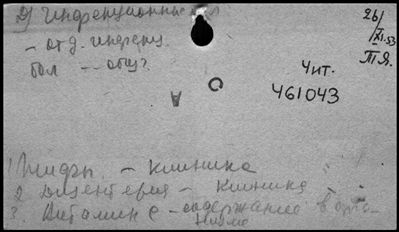 2) Инфекционные
- отд. инфекц.
бол -- общ?
26/XI.53
Т.Я.
Чит.
461043
А
С
1) Тифы. - клиника
2 Дизентерия - клиника
3. Витамин С - содержание в орга-
низме